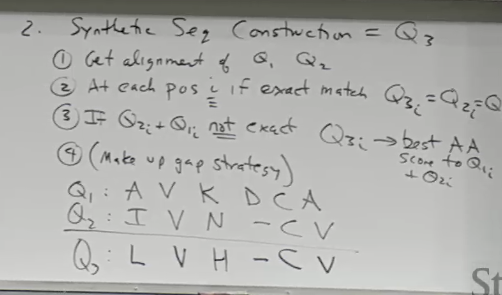 2. Synthetic Seq Construction = Q3
① Get alignment of Q1 Q2
② At each pos i if exact match Q3i = Q2i = Q
③ If Q2i + Q1i not exact Q3i → best AA
score to Q1i
+ Q2i
④ (Make up gap strategy)
Q1: A V K D C A
Q2: I V N - C V
Q3: L V H - C V
St